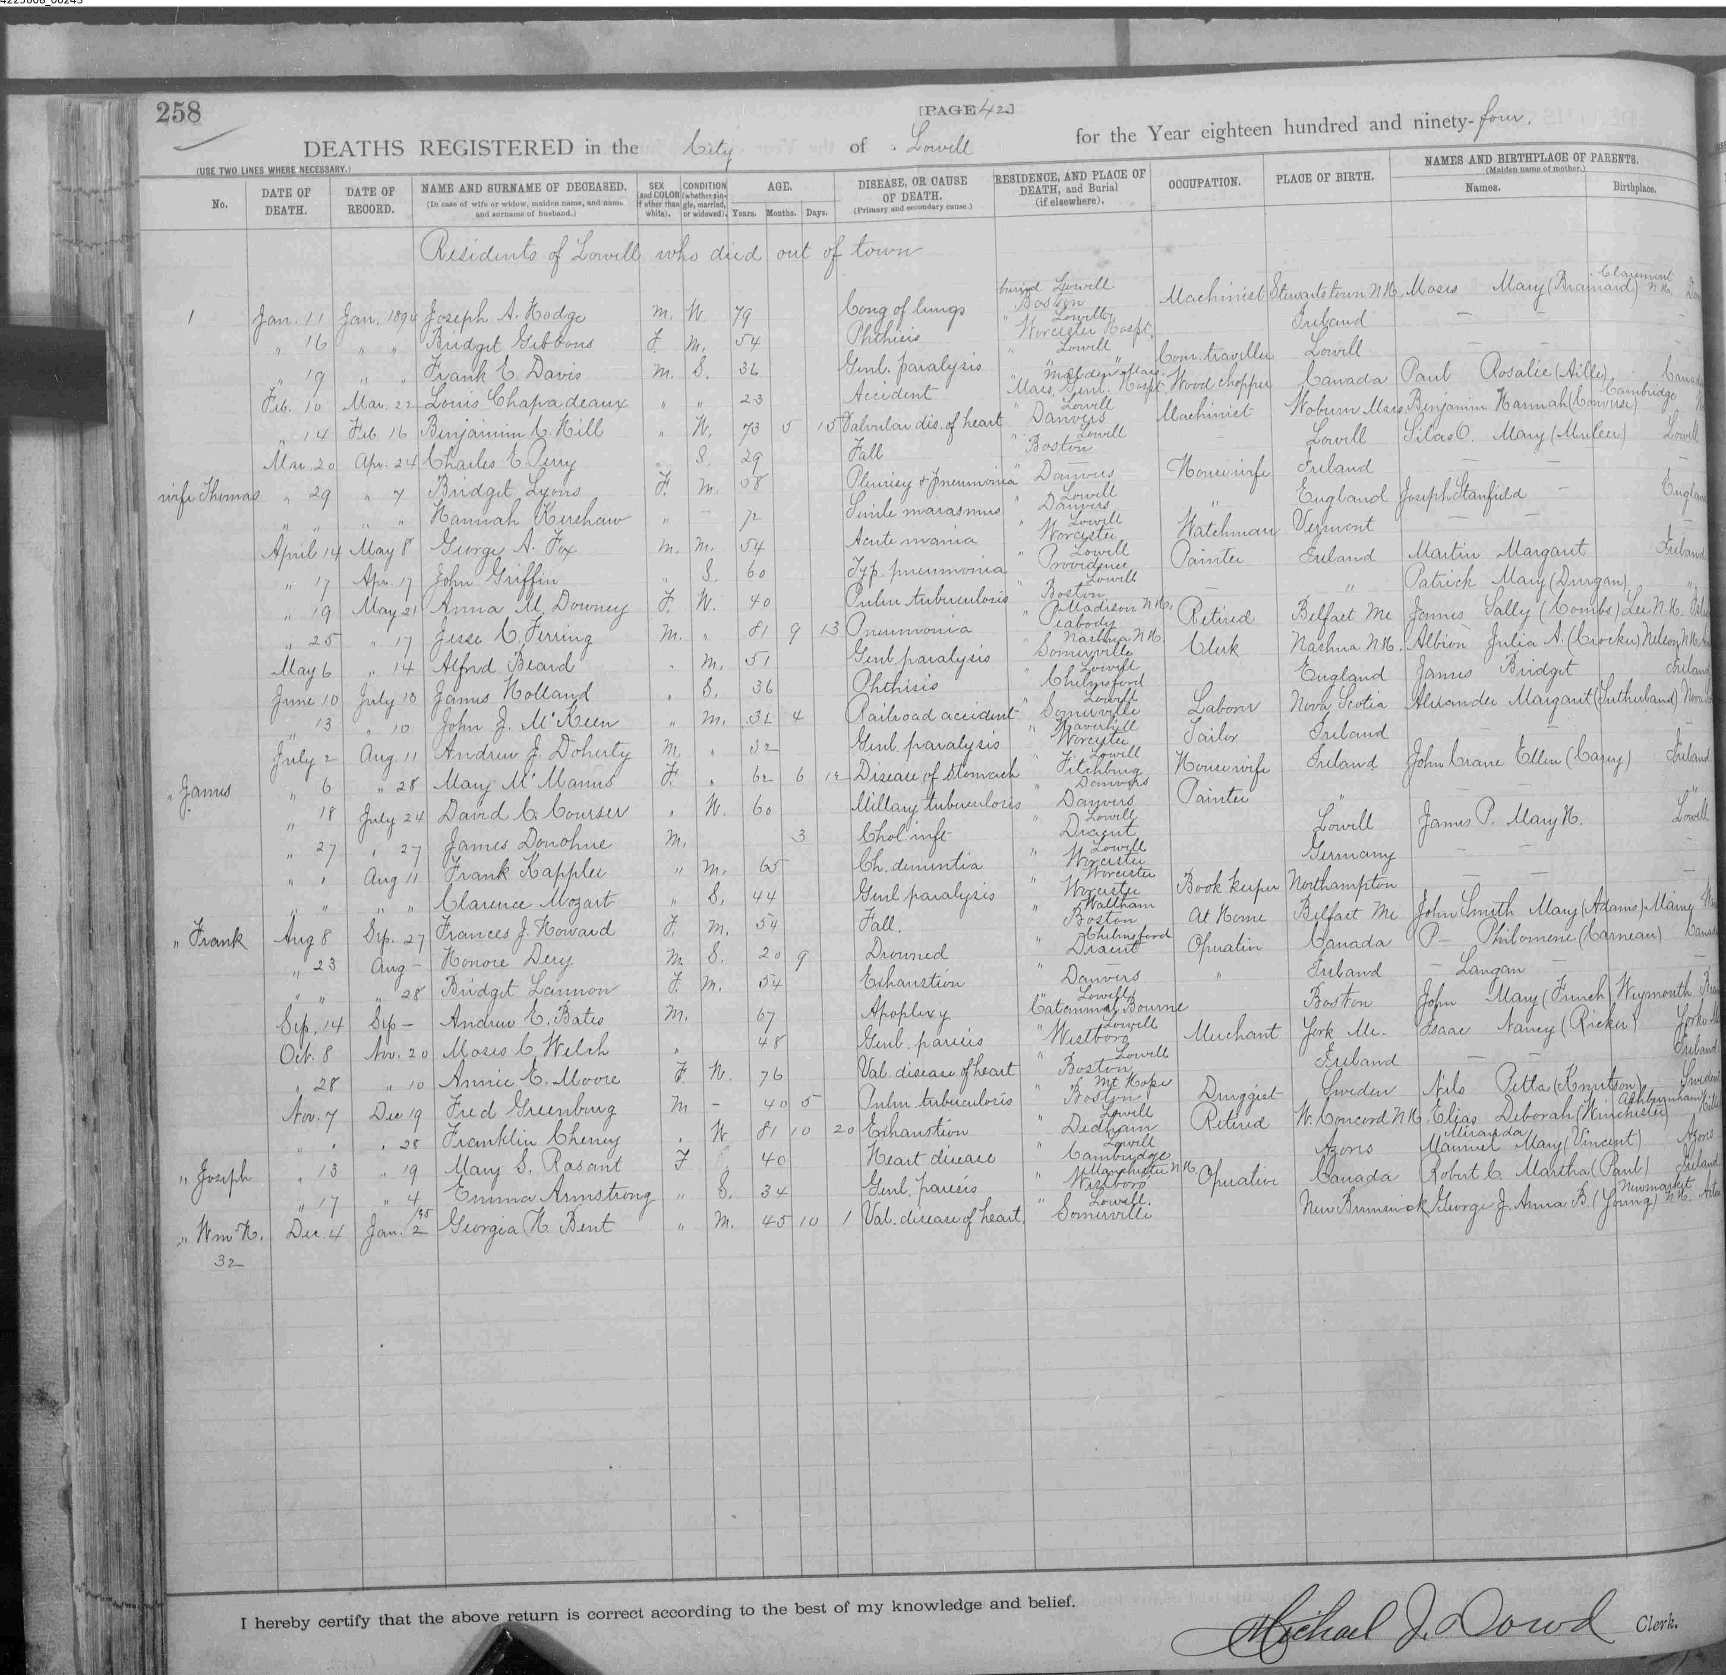 258
[PAGE 42]
DEATHS REGISTERED in the City of Lowell for the Year eighteen hundred and ninety-four.
(USE TWO LINES WHERE NECESSARY.)
No. DATE OF DEATH. DATE OF RECORD. NAME AND SURNAME OF DECEASED. (In case of wife or widow, maiden name, and name and surname of husband.) SEX (and COLOR if other than white). CONDITION (whether single, married, or widowed). AGE. Years. Months. Days. DISEASE, OR CAUSE OF DEATH. (Primary and secondary cause.) RESIDENCE, AND PLACE OF DEATH, and Burial (if elsewhere). OCCUPATION. PLACE OF BIRTH. NAMES AND BIRTHPLACE OF PARENTS. (Maiden name of mother.) Names. Birthplace.
Residents of Lowell who died out of town
1 Jan. 11 Jan. 1894 Joseph A. Hodge M. W. 79 Cong of lungs buried Lowell Boston Machinist Stewartstown N.H. Moses Mary (Brainard) Claremont N.H.
" 16 " " Bridget Gibbons F. M. 54 Phthisis " Lowell Worcester Hospt. Ireland — —
" 19 " " Frank E Davis M. S. 36 Genl. paralysis " Lowell " " Com. traveller Lowell — —
Feb. 10 Mar. 22 Louis Chapadeaux " " 23 Accident Malden Mass. Mass. Genl. Hospt. Wood chopper Canada Paul Rosalie (Aille) Canada
" 14 Feb. 16 Benjamin C. Hill " W. 73 5 15 Valvular dis. of heart " Lowell Danvers Machinist Woburn Mass. Benjamin Hannah (Converse) Cambridge
Mar. 20 Apr. 24 Charles E. Perry " S. 29 Fall " Lowell Boston — Lowell Silas O. Mary (Mulcer) Lowell
wife Thomas " 29 " 7 Bridget Lyons F. M. 58 Pleurisy & pneumonia " Danvers Housewife Ireland — —
" " " " Hannah Kershaw " — 72 Senile marasmus " Lowell Danvers " England Joseph Stanfield — England
April 14 May 8 George A. Fox M. M. 54 Acute mania " Lowell Worcester Watchman Vermont — —
" 17 Apr. 17 John Griffin " S. 60 Typ. pneumonia " Lowell Providence Painter Ireland Martin Margaret Ireland
" 19 May 21 Anna M. Downey F. W. 40 Pulm tuberculosis " Lowell Boston — " Patrick Mary (Durgan) "
" 25 " 17 Jesse C. Ferring M. " 81 9 13 Pneumonia " Madison N.H. Peabody Retired Belfast Me James Sally (Combs) Lee N.H.
May 6 " 14 Alfred Beard " M. 51 Genl paralysis " Nashua N.H. Somerville Clerk Nashua N.H. Albion Julia A. (Crocker) Nelson N.H.
June 10 July 10 James Holland " S. 36 Phthisis " Lowell Chelmsford England James Bridget Ireland
" 13 " 10 John J. McKeen " M. 32 4 Railroad accident " Lowell Somerville Laborer Nova Scotia Alexander Margaret (Sutherland) Nova
July 2 Aug. 11 Andrew J. Doherty M. " 32 Genl. paralysis " Haverhill Worcester Tailor Ireland
" James " 6 " 28 Mary McManus F. " 62 6 12 Disease of stomach " Lowell Fitchburg Housewife Ireland John Crane Ellen (Carey) Ireland
" 18 July 24 David C. Courser " W. 60 Millary tuberculosis " Danvers Danvers Painter " — — "
" 27 " 27 James Donohue M. 3 Chol inft " Lowell Dracut Lowell James P. Mary H. Lowell
" " Aug 11 Frank Kappler " M. 65 Ch. dementia " Lowell Worcester Germany — —
" " " " Clarence Mozart " S. 44 Genl paralysis " Worcester Worcester Book keeper Northampton — —
" Frank Aug 8 Sep. 27 Frances J. Howard F. M. 54 Fall. " Waltham Boston At Home Belfast Me John Smith Mary (Adams) Maine
" 23 Aug — Honore Dery M. S. 20 9 Drowned " Chelmsford Dracut Operative Canada P— Philomene (Carneau) Canada
" " " 28 Bridget Lannon F. M. 54 Exhaustion " Danvers " Ireland — Langan —
Sep. 14 Sep — Andrew E. Bates M. 67 Apoplexy " Lowell Cataumet, Bourne Boston John Mary (French) Weymouth
Oct. 8 Nov. 20 Moses C. Welch " 48 Genl. paresis " Lowell Westboro Merchant York Me. Isaac Nancy (Ricker) York
" 28 " 10 Annie E. Moore F. W. 76 Val. disease of heart " Lowell Boston Ireland — — Ireland
Nov. 7 Dec 19 Fred Greenburg M — 40 5 Pulm. tuberculosis " Mt Hope Boston Druggist Sweden Nils Petta (Knutson) Sweden
" " " 28 Franklin Cheney " W. 81 10 20 Exhaustion " Lowell Dedham Retired W. Concord N.H. Elias Deborah (Winchester) Ashburnham
" Joseph " 13 " 19 Mary S. Rasant F 40 Heart disease " Lowell Cambridge Azores Manuel Miranda Mary (Vincent) Azores
" 17 " 4 Emma Armstrong " S. 34 Genl. paresis " Manchester N.H. Westboro Operative Canada Robert C. Martha (Paul) Ireland
" Wm H. Dec. 4 Jan. 2 /95 Georgia H. Bent " M. 45 10 1 Val. disease of heart. " Lowell. Somerville New Brunswick George J. Anna B. (Young) Newmarket N.H.
32
I hereby certify that the above return is correct according to the best of my knowledge and belief.
Michael J. Dowd Clerk.